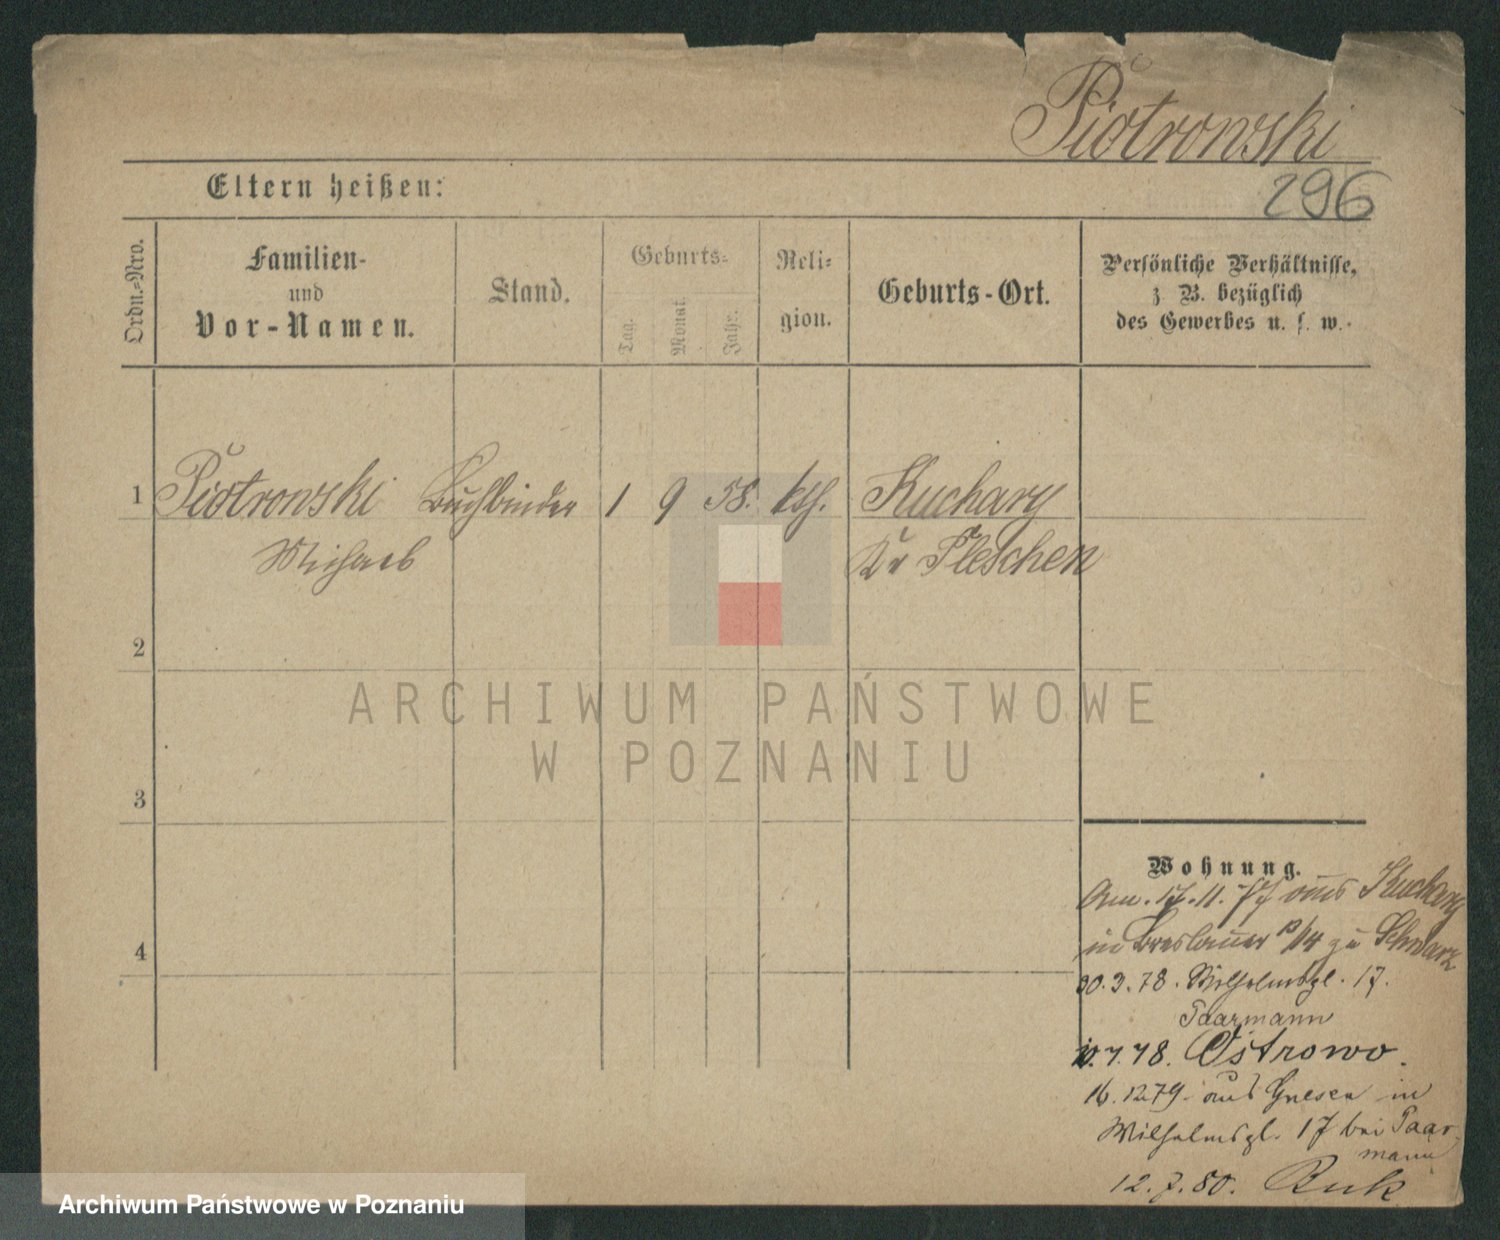 Piotrowski
296
Eltern heißen:
Ordn.-Nro.
Familien-
und
Vor-Namen.
Stand.
Geburts-
Tag.
Monat.
Jahr.
Reli-
gion.
Geburts-Ort.
Persönliche Verhältnisse,
z. B. bezüglich
des Gewerbes u. s. w.
1 Piotrowski Buchbinder 1 9 58. kth. Kuchary
Michael Kr Pleschen
2
3
4
ARCHIWUM PAŃSTWOWE
W POZNANIU
Wohnung.
17.11.77 aus Kuchary
in Breslauer 13/14 zu Schwarz
30.3.78. Wilhelmspl. 17.
Paarmann
7.78. Ostrowo.
16.12.79. aus Gnesen in
Wilhelmspl. 17 bei Paar
mann
12.7.80. Buk
Archiwum Państwowe w Poznaniu